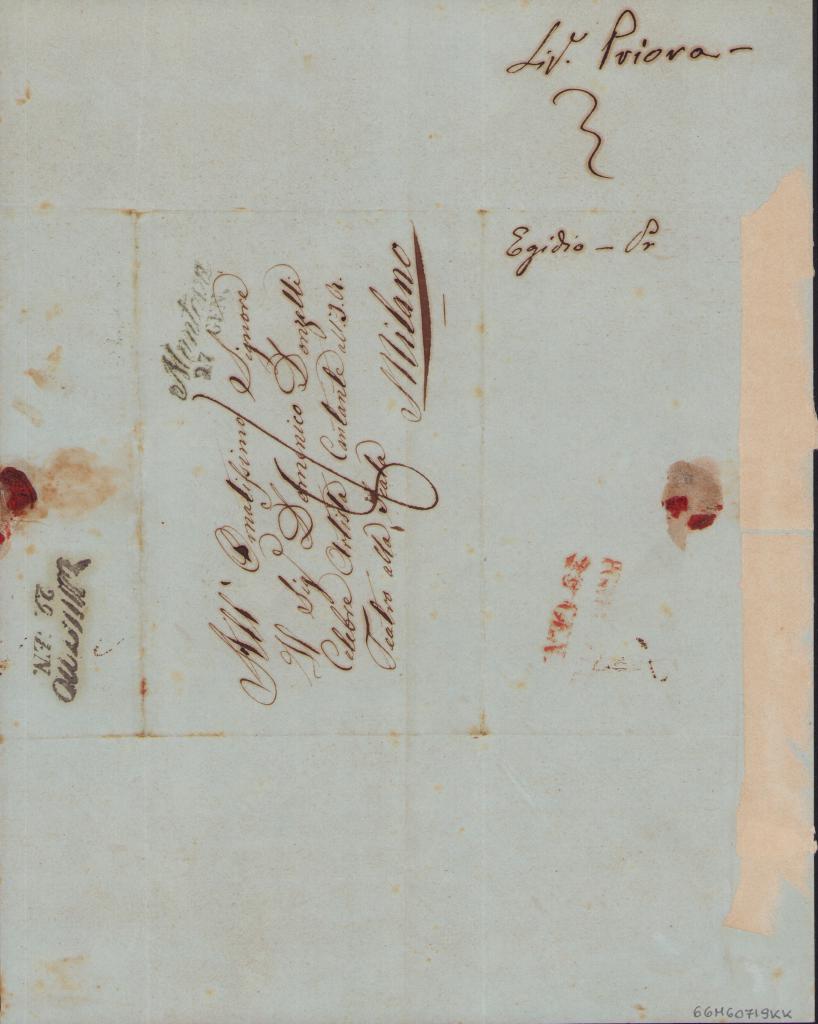 Sig.r Priora -
Egidio - Pr
Mantova
27 GEN.
All' Ornatissimo Signore
Il Sig.r Domenico Donzelli
Celebre Artista Cantante all' I. R.
Teatro alla Scala
Milano
29 GEN.
66M60719KK